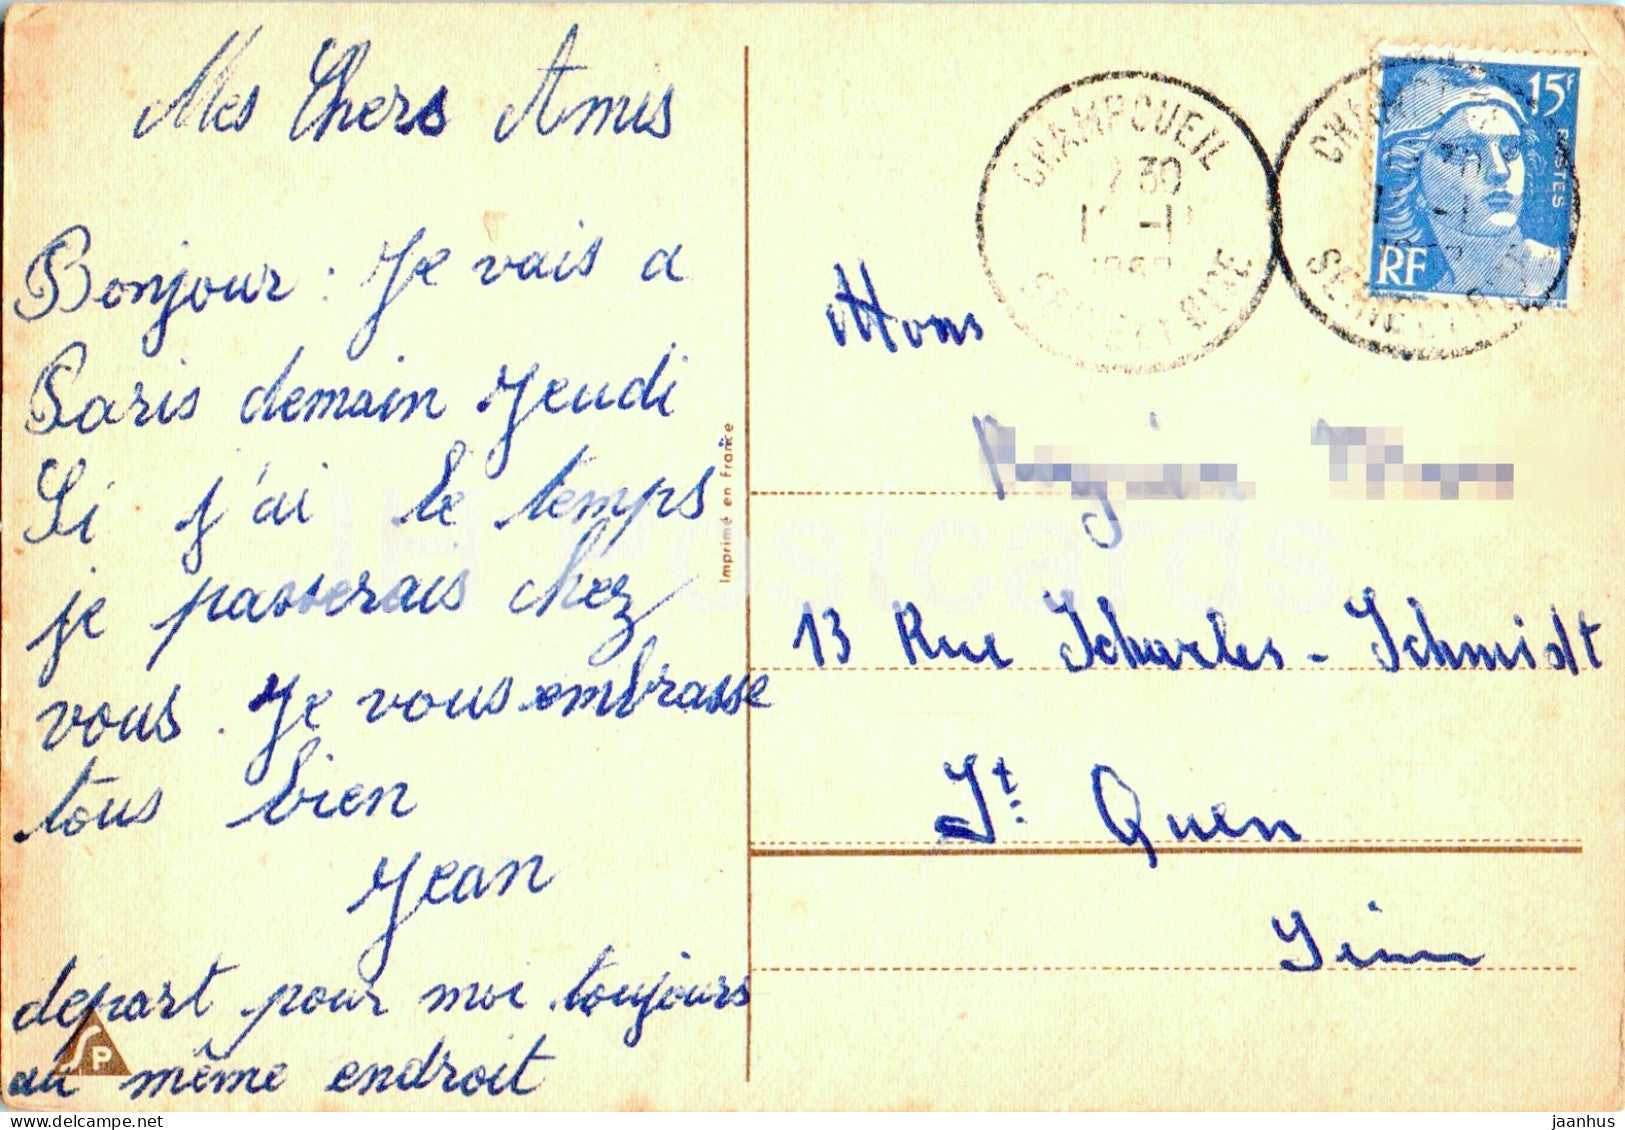 Mes Chers Amis
Bonjour : Je vais a
Paris demain Jeudi
Si j'ai le temps
je passerais chez
vous. Je vous embrasse
tous bien
Jean
depart pour moi toujours
au même endroit
SP
Imprimé en France
CHAMPCUEIL
SEINE ET OISE
15F
POSTES
RF
Mons
13 Rue Scharles-Schmidt
St Quen
Seine
JH Postcards
jaanhus